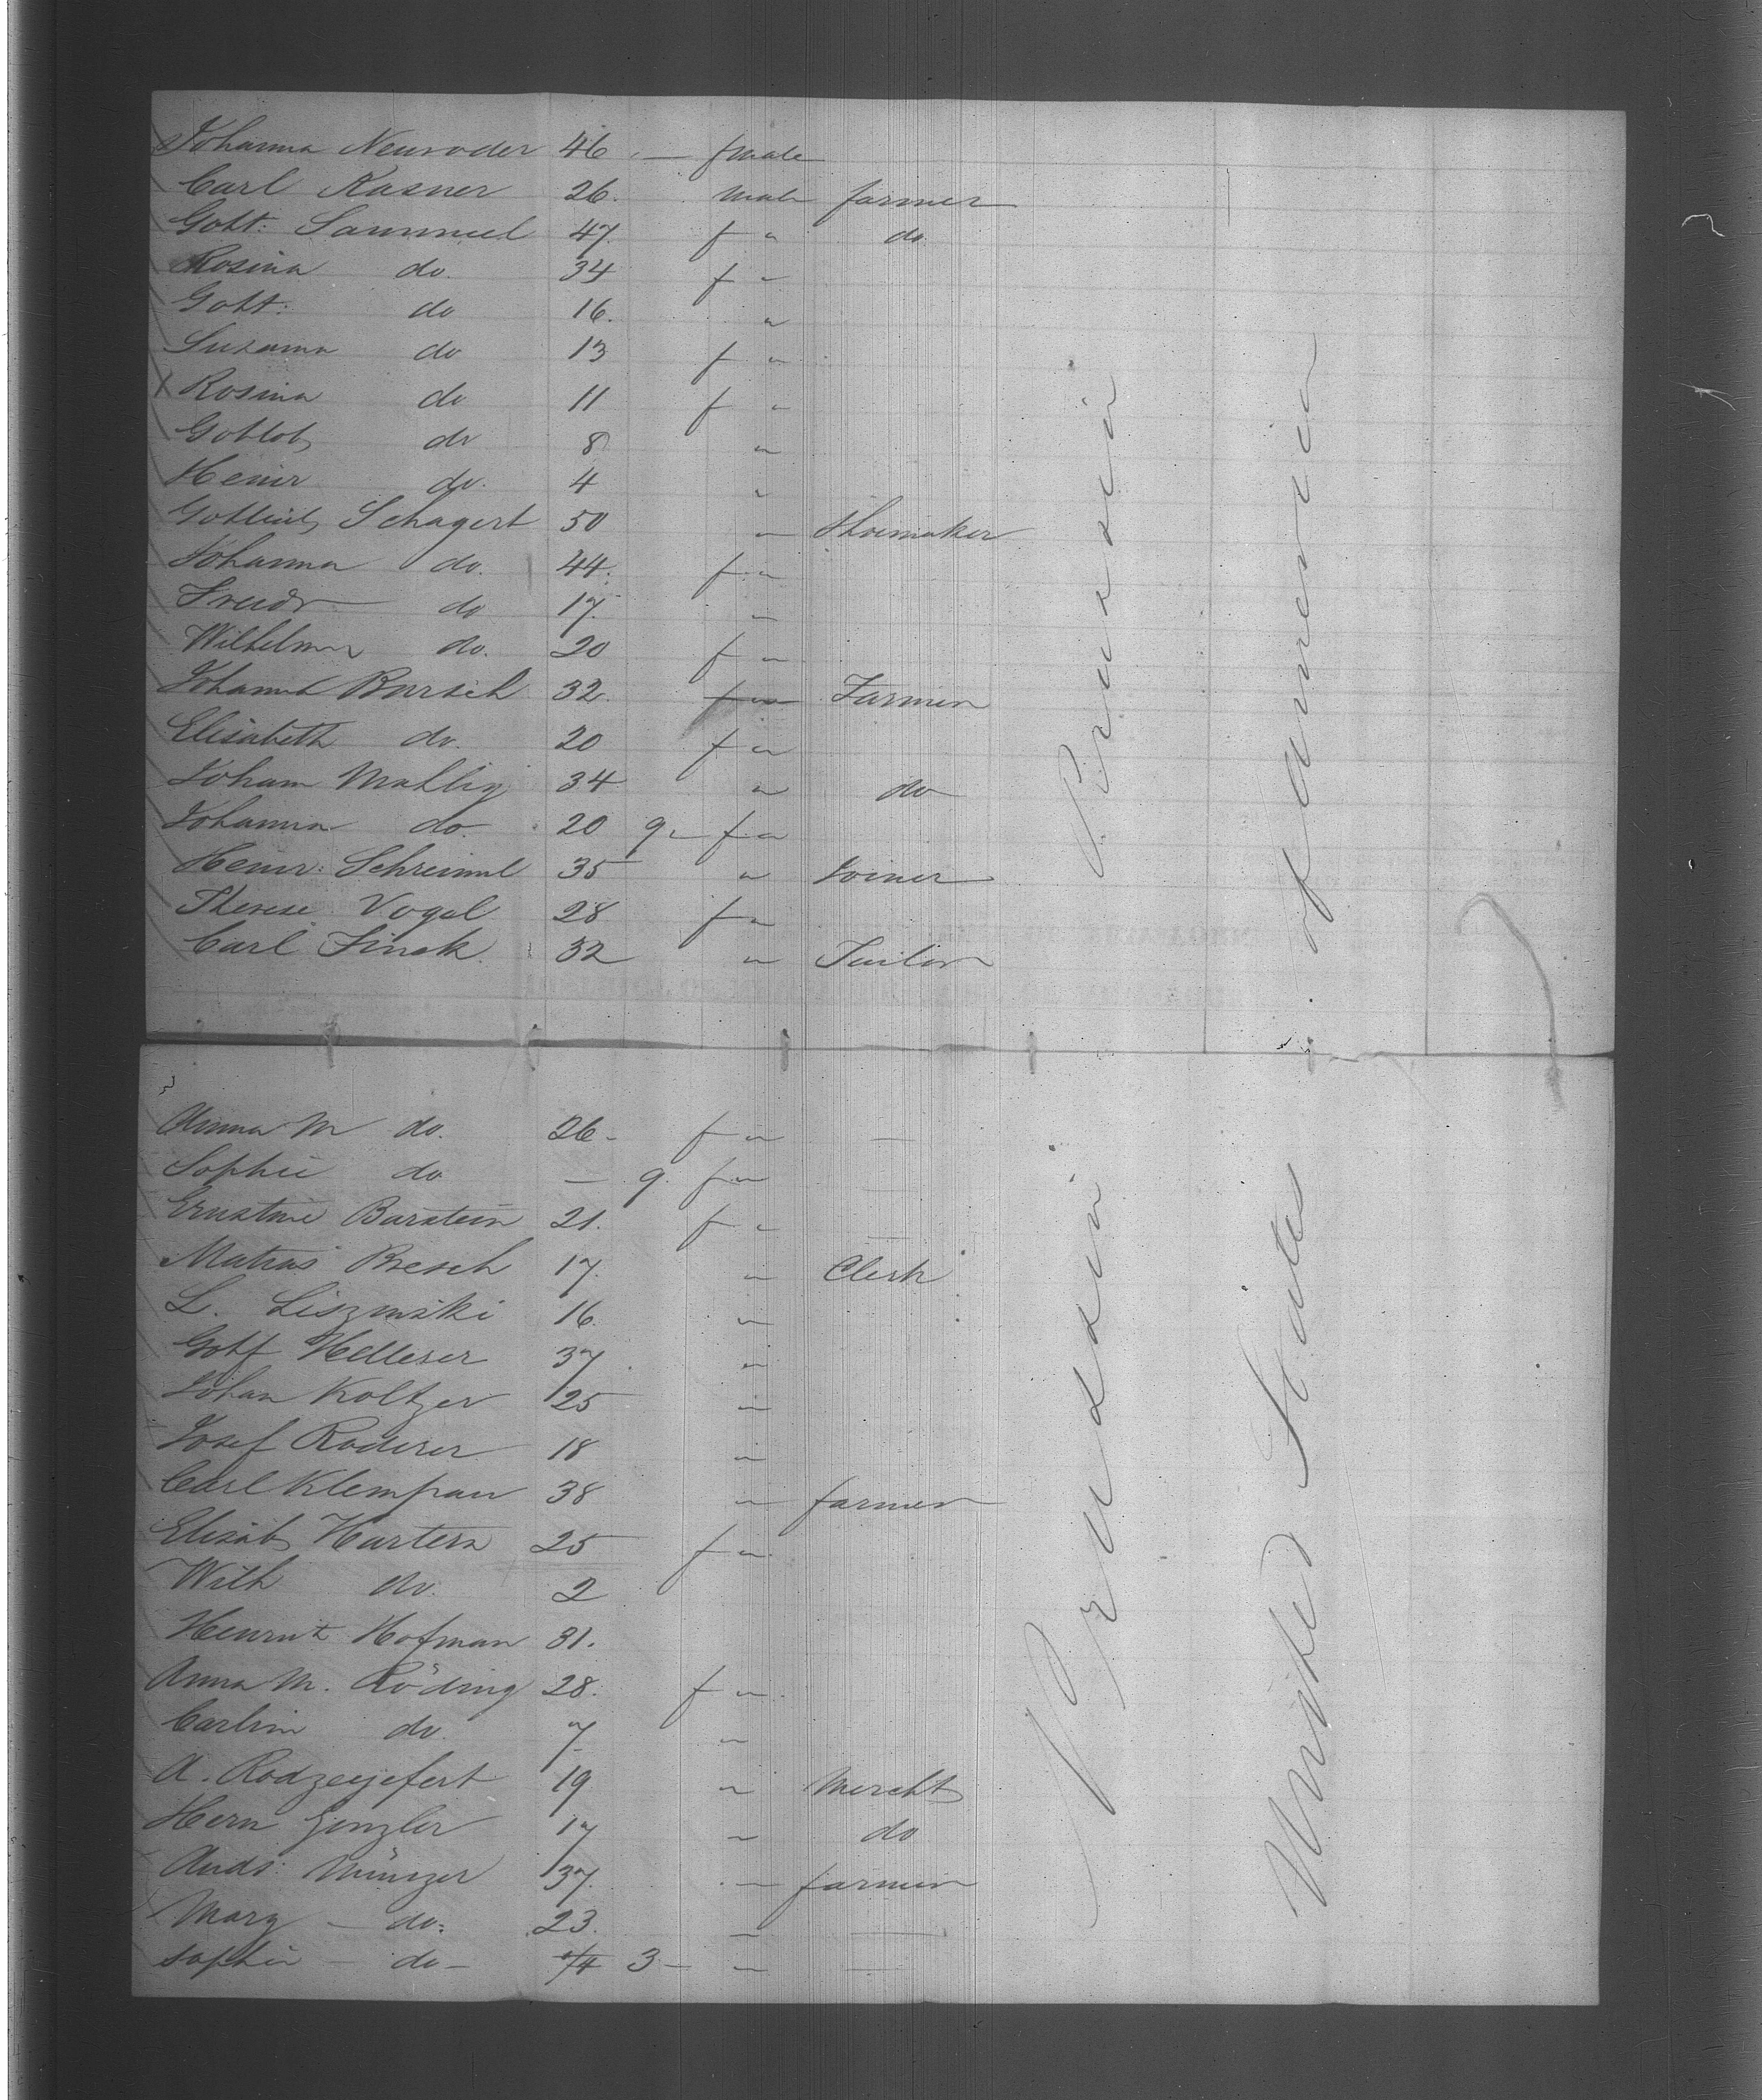 Johanna Neuroder 46 — fmale
Carl Kasner 26. male farmer
Gott: Sammuel 47. f " do.
Rosina do. 34 f "
Gott: do 16. "
Susanna do 13 f "
Rosina do 11 f "
Gottlob do 8 "
Heinr do. 4 "
Gottlieb Schagert 50 " Shoemaker
Johanna do. 44. f "
Friedr do 17. "
Wilhelmn do. 20 f "
Johann Bursch 32. Farmer
Elisabeth do. 20 f "
Johann Mahlig 34 " do
Johanna do. 20 9 — f "
Heinr: Schreiml 35 " Joiner
Therese Vogel 28 f "
Carl Finck. 32 " Tailor
Prussia
of America
Anna M do. 26 - f " —
Sophie do — 9. f "
Ernstine Barstein 21. f " —
Matias Besch 17. " Clerk
L. Liszmski 16. "
Gottf Hellerer 37. "
Johan Koltzer 25 "
Josef Roderer 18 "
Carl Klempau 38 " farmer
Elisab Hartern 25 f "
Wilh do. 2
Heinrich Hofman 31.
Anna M. Röding 28. f "
Carlin do. 7 "
A. 19 " Mercht
Hern Genzler 17 " do
Andr: Münzer 37. " farmer
Marg — do. 23. " —
Sophie — do — 3 — " —
Prussia
United States